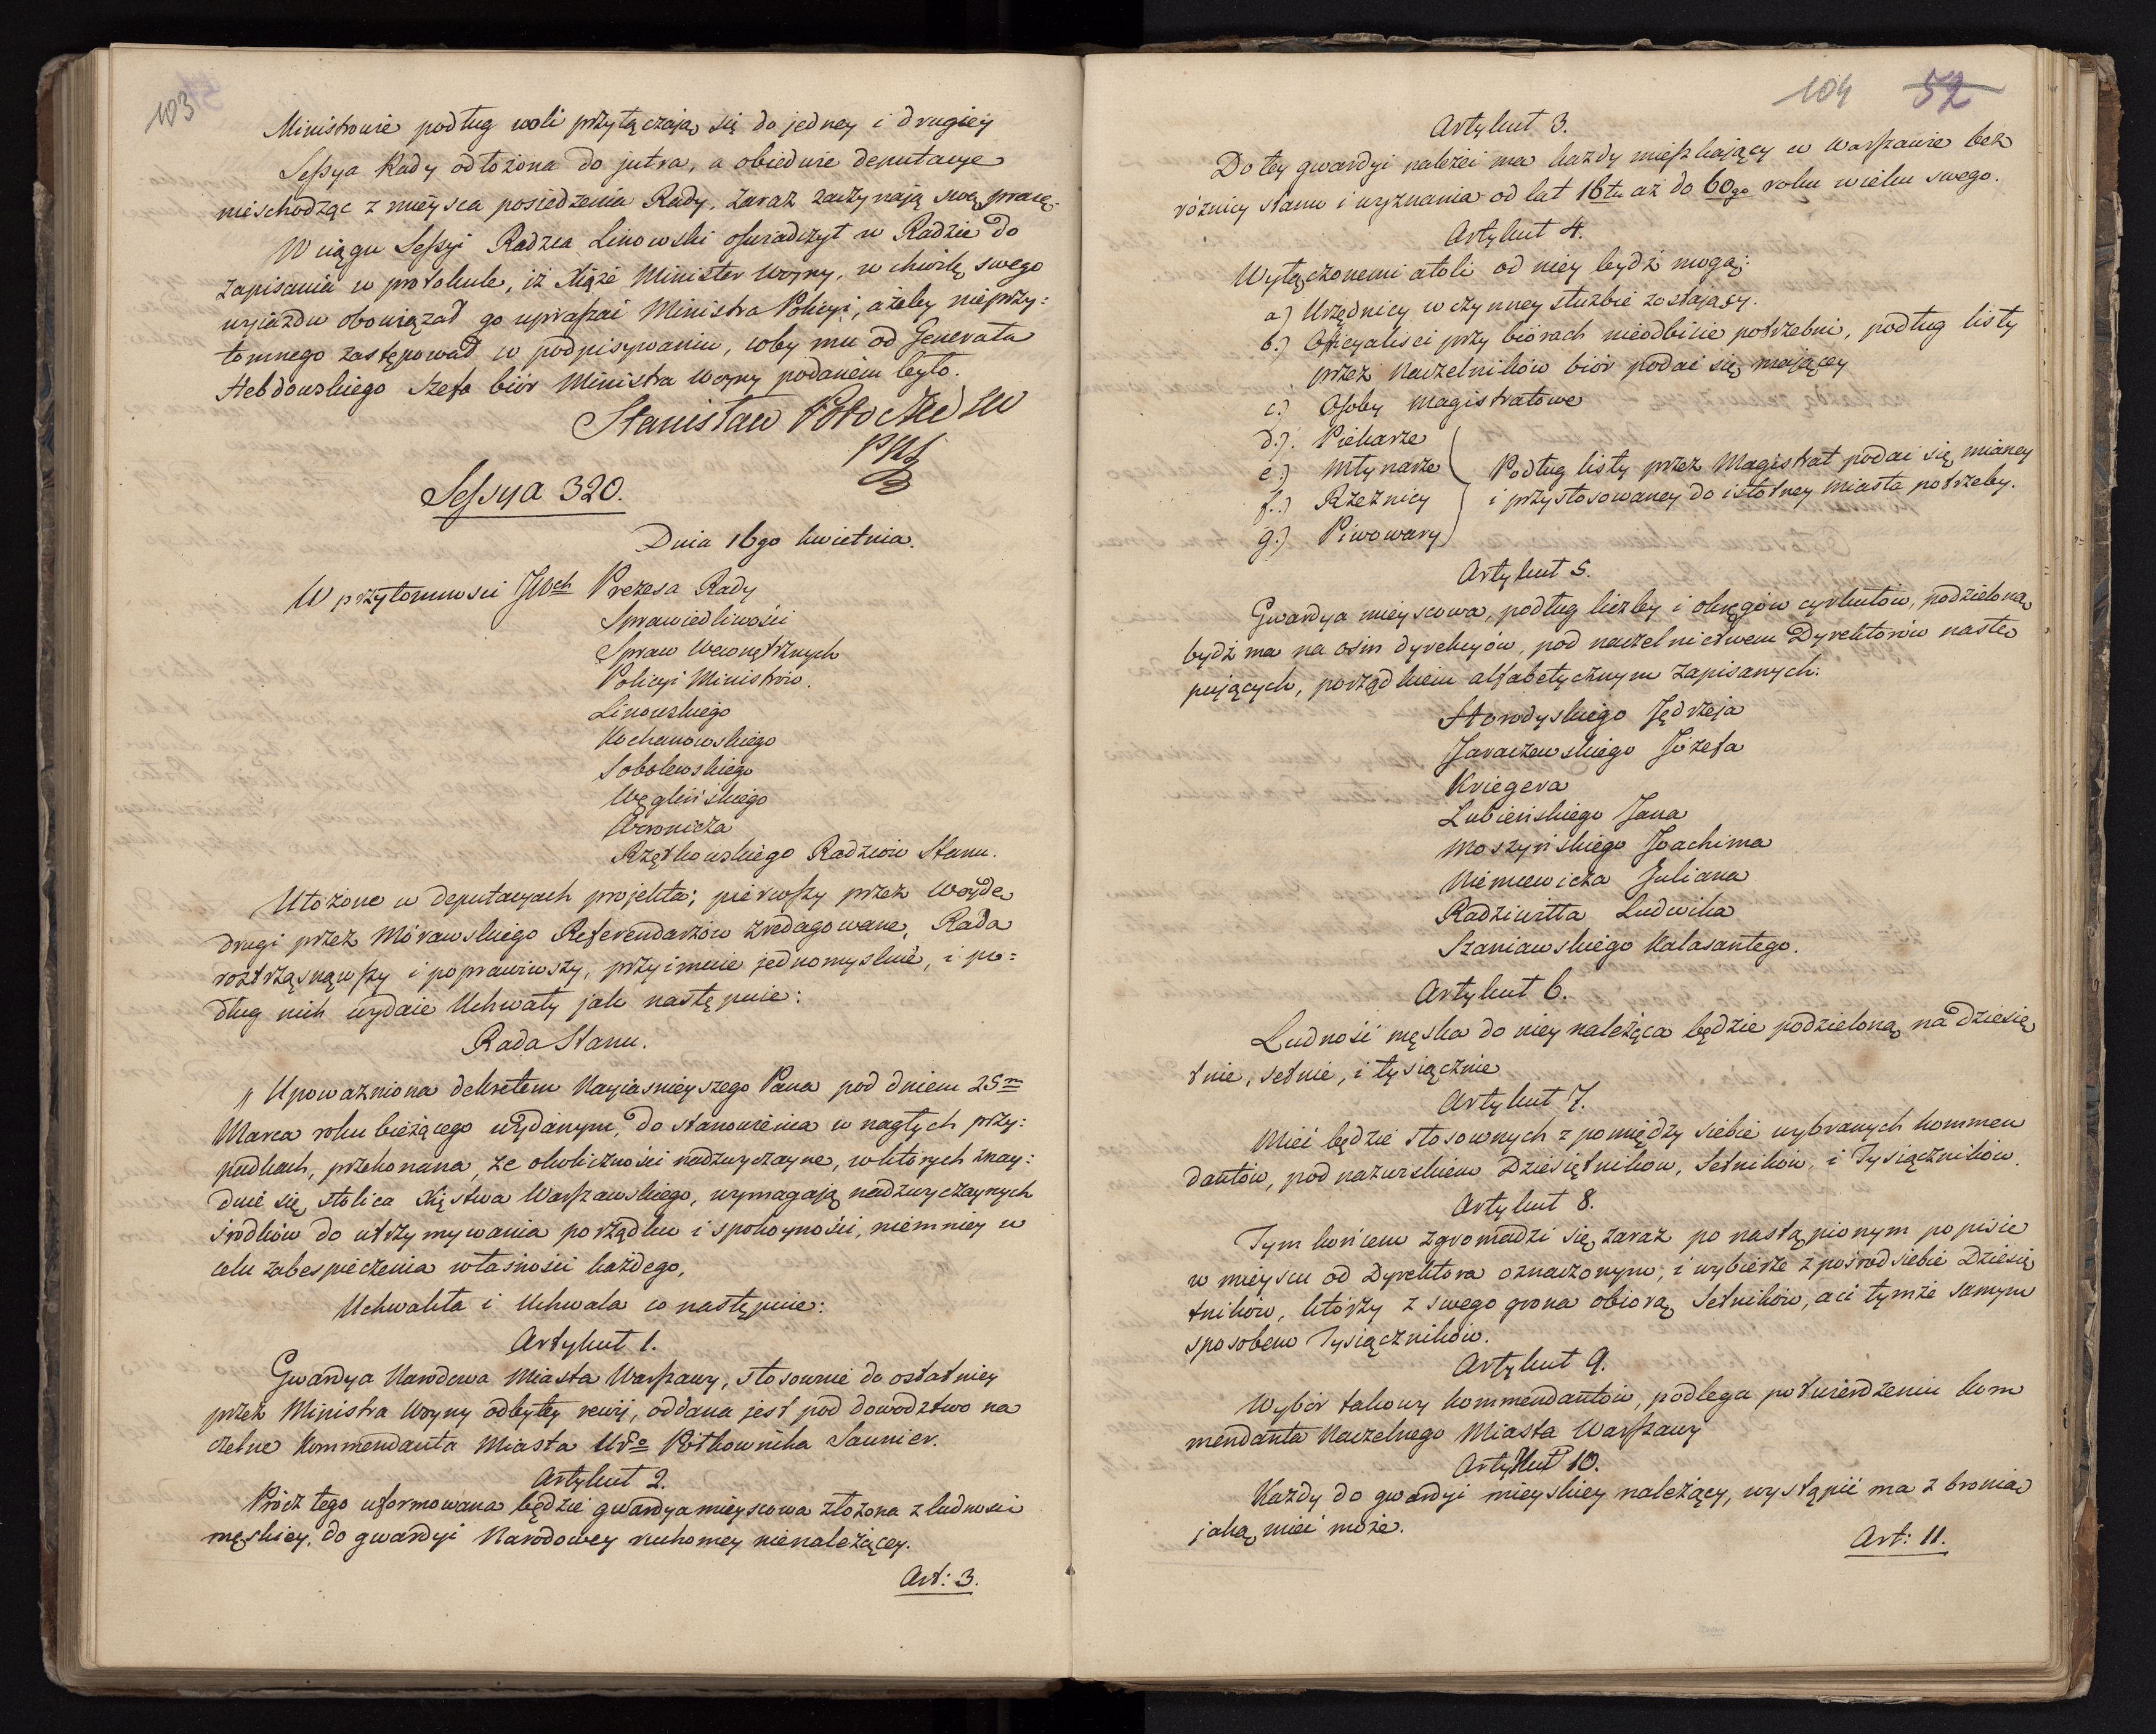 103
Ministrowie podług woli przyłączają się do jedney i drugiey
Sessya Rady odłożona do jutra, a obiedwie deputacye
nieschodząc z mieysca posiedzenia Rady, zaraz zaczynają swą pracę.
W ciągu Sessyi Radzca Linowski oświadczył w Radzie do
zapisania w protokule, iż Xiąże Minister Woyny, w chwilę swego
wyiazdu obowiązał go upraszać Ministra Policyi, ażeby nieprzy=
tomnego zastępował w podpisywaniu, coby mu od Generała
Hebdowskiego Szefa biór Ministra Woyny podanem było.
Stanisław Potocki
Sessya 320.
Dnia 16go kwietnia.
W przytomności JWch Prezesa Rady
Sprawiedliwości
Spraw Wewnętrznych
Policyi Ministrów.
Linowskiego
Kochanowskiego
Sobolewskiego
Węgleńskiego
Woronicza
Rzętkowskiego Radzców Stanu.
Ułożone w deputacyach projekta; pierwszy przez Woydę
drugi przez Mórawskiego Referendarzów zredagowane, Rada
roztrząsnąwszy i poprawiwszy, przyimuie jednomyslnie, i po=
dług nich wydaie Uchwały jak następuie:
Rada Stanu.
„ Upoważniona dekretem Nayiasnieyszego Pana pod dniem 25m
Marca roku bieżącego wydanym, do stanowienia w nagłych przy=
padkach, przekonana, że okoliczności nadzwyczayne, w których znay=
duie się stolica Xięstwa Warszawskiego, wymagają nadzwyczaynych
środków do utrzymywania porządku i spokoyności, niemniey w
celu zabespieczenia własności każdego,
Uchwaliła i Uchwala co następuie:
Artykuł 1.
Gwardya Narodowa Miasta Warszawy, stosownie do ostatniey
przez Ministra Woyny odbytey rewij, oddana jest pod dowodztwo na
czelne Kommendanta Miasta Urgo Półkownika Saunier.
Artykuł 2.
Prócz tego uformowana będzie gwardya mieyscowa złożona z ludności
męskiey, do gwardyi Narodowey ruchomey nienależącey.
Art: 3.
104 52
Artykuł 3.
Do tey gwardyi należeć ma każdy mieszkający w Warszawie bez
różnicy stanu i wyznania od lat 16tu aż do 60go roku wieku swego.
Artykuł 4.
Wyłączonemi atoli od niey bydź mogą:
a) Urzędnicy w czynney służbie zostający.
b.) Officyaliści przy biórach nieodbicie potrzebni, podług listy
przez Naczelników biór podać się maiącey
c.) Osoby Magistratowe
d.) Piekarze
e.) Młynarze Podług listy przez Magistrat podać się mianey
f.) Rzeznicy i przystosowaney do istotney miasta potrzeby.
g.) Piwowary
Artykuł 5.
Gwardya mieyscowa, podług liczby i okręgów cyrkułów, podzieloną
bydź ma na ośm dyrekcyów, pod naczelnictwem Dyrektorów nastę
pujących, porządkiem alfabetycznym zapisanych:
Horodyskiego Jędrzeja
Jaraczewskiego Józefa
Kriegera
Lubieńskiego Jana
Moszyńskiego Joachima
Niemcewicza Juliana
Radziwiłła Ludwika
Szaniawskiego Kalasantego.
Artykuł 6.
Ludność męska do niey należąca będzie podzieloną na dziesię
tnie, setnie, i tysiącznie
Artykuł 7.
Mieć będzie stosownych z pomiędzy siebie wybranych kommen
dantów, pod nazwiskiem Dziesiętników, Setników, i Tysiączników.
Artykuł 8.
Tym końcem zgromadzi się zaraz po nastąpionym popisie
w mieyscu od Dyrektora oznaczonym; i wybierze z pośrod siebie Dziesię
tników, którzy z swego grona obiorą Setników, a ci tymże samym
sposobem Tysiączników.
Artykuł 9.
Wybór takowy kommendantów, podlega potwierdzeniu kom
mendanta Naczelnego Miasta Warszawy
Artykuł 10.
Każdy do gwardyi mieyskiey należący, wystąpić ma z bronią
jaką mieć może.
Art: 11.